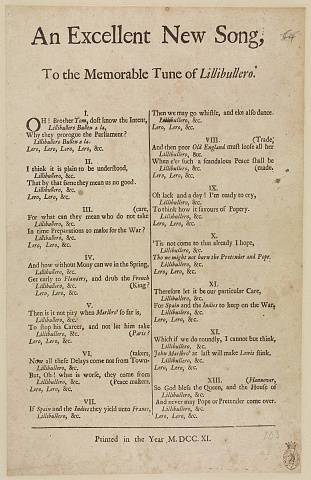 An Excellent New Song,
To the Memorable Tune of Lillibullero.
I.
OH! Brother Tom, dost know the Intent,
Lillibullero Bullen a la.
Why they prorogue the Parliament?
Lillibullero Bullen a la.
Lero, Lero, Lero, Lero, &c.
II.
I think it is plain to be understood,
Lillibullero, &c.
That by that same they mean us no good.
Lillibullero, &c.
Lero, Lero, &c.
III. (care,
For what can they mean who do not take
Lillibullero, &c.
In time Preparations to make for the War?
Lillibullero, &c.
Lero, Lero, &c.
IV.
And how without Mony can we in the Spring,
Lillibullero, &c.
Get early to Flanders, and drub the French
Lillibullero, &c. (King?
Lero, Lero, &c.
V.
Then is it not pity when Marlbro' so far is,
Lillibullero, &c.
To stop his Career, and not let him take
Lillibullero, &c. (Paris?
Lero, Lero, &c.
VI. (takers,
Now all these Delays come not from Town-
Lillibullero, &c.
But, Oh! what is worse, they come from
Lillibullero, &c. (Peace makers.
Lero, Lero, &c.
VII.
If Spain and the Indies they yield unto France,
Lillibullero, &c.
Then we may go whistle, and eke also dance.
Lillibullero, &c.
Lero, Lero, &c.
VIII. (Trade;
And then poor Old England must loose all her
Lillibullero, &c.
When e'er such a scandalous Peace shall be
Lillibullero, &c. (made.
Lero, Lero, &c.
IX.
Oh lack and a day! I'm ready to cry,
Lillibullero, &c.
To think how it savours of Popery.
Lillibullero, &c.
Lero, Lero, &c.
X.
'Tis not come to that already I hope,
Lillibullero, &c.
Tho we might not burn the Pretender and Pope.
Lillibullero, &c.
Lero, Lero, &c.
XI.
Therefore let it be our particular Care,
Lillibullero, &c.
For Spain and the Indies to keep on the War,
Lillibullero, &c.
Lero, Lero, &c.
XII.
Which if we do roundly, I cannot but think,
Lillibullero, &c.
John Marlbro' at last will make Lewis stink,
Lillibullero, &c.
Lero, Lero, &c.
XIII. (Hannover,
So God bless the Queen, and the House of
Lillibullero, &c.
And never may Pope or Pretender come over.
Lillibullero, &c.
Lero, Lero, &c.
Printed in the Year M.DCC.XI.
103